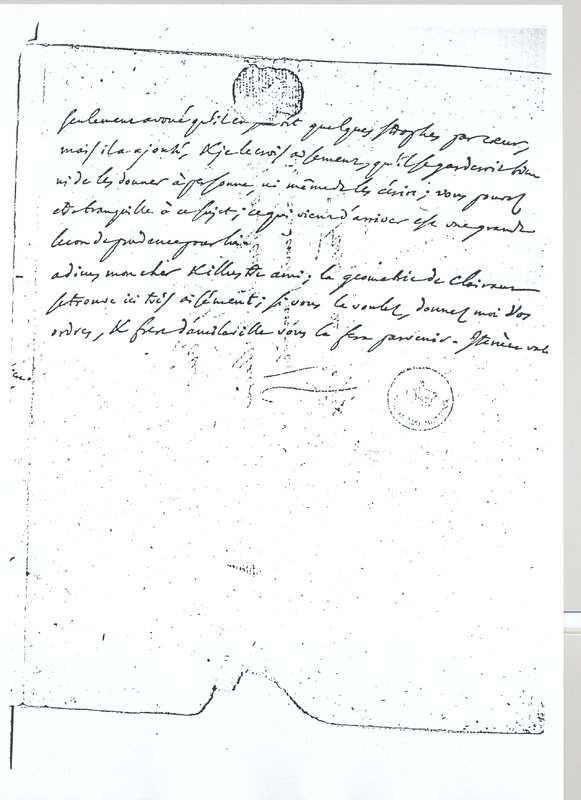 seulement avoué qu'il en savoit quelques strophes par cœur,
mais il a ajouté, & je le crois aisement, qu'il se garderoit bien
ni de les donner à personne, ni même de les écrire; vous pouvez
etre tranquille à ce sujet; ce qui vient d'arriver est une grande
lecon de prudence pour lui.
adieu mon cher & illustre ami; la geometrie de Clairaut
se trouve ici très aisément; si vous la voulez, donnez moi vos
ordres, & frere damilaville vous la fera parvenir. Iterùm vale